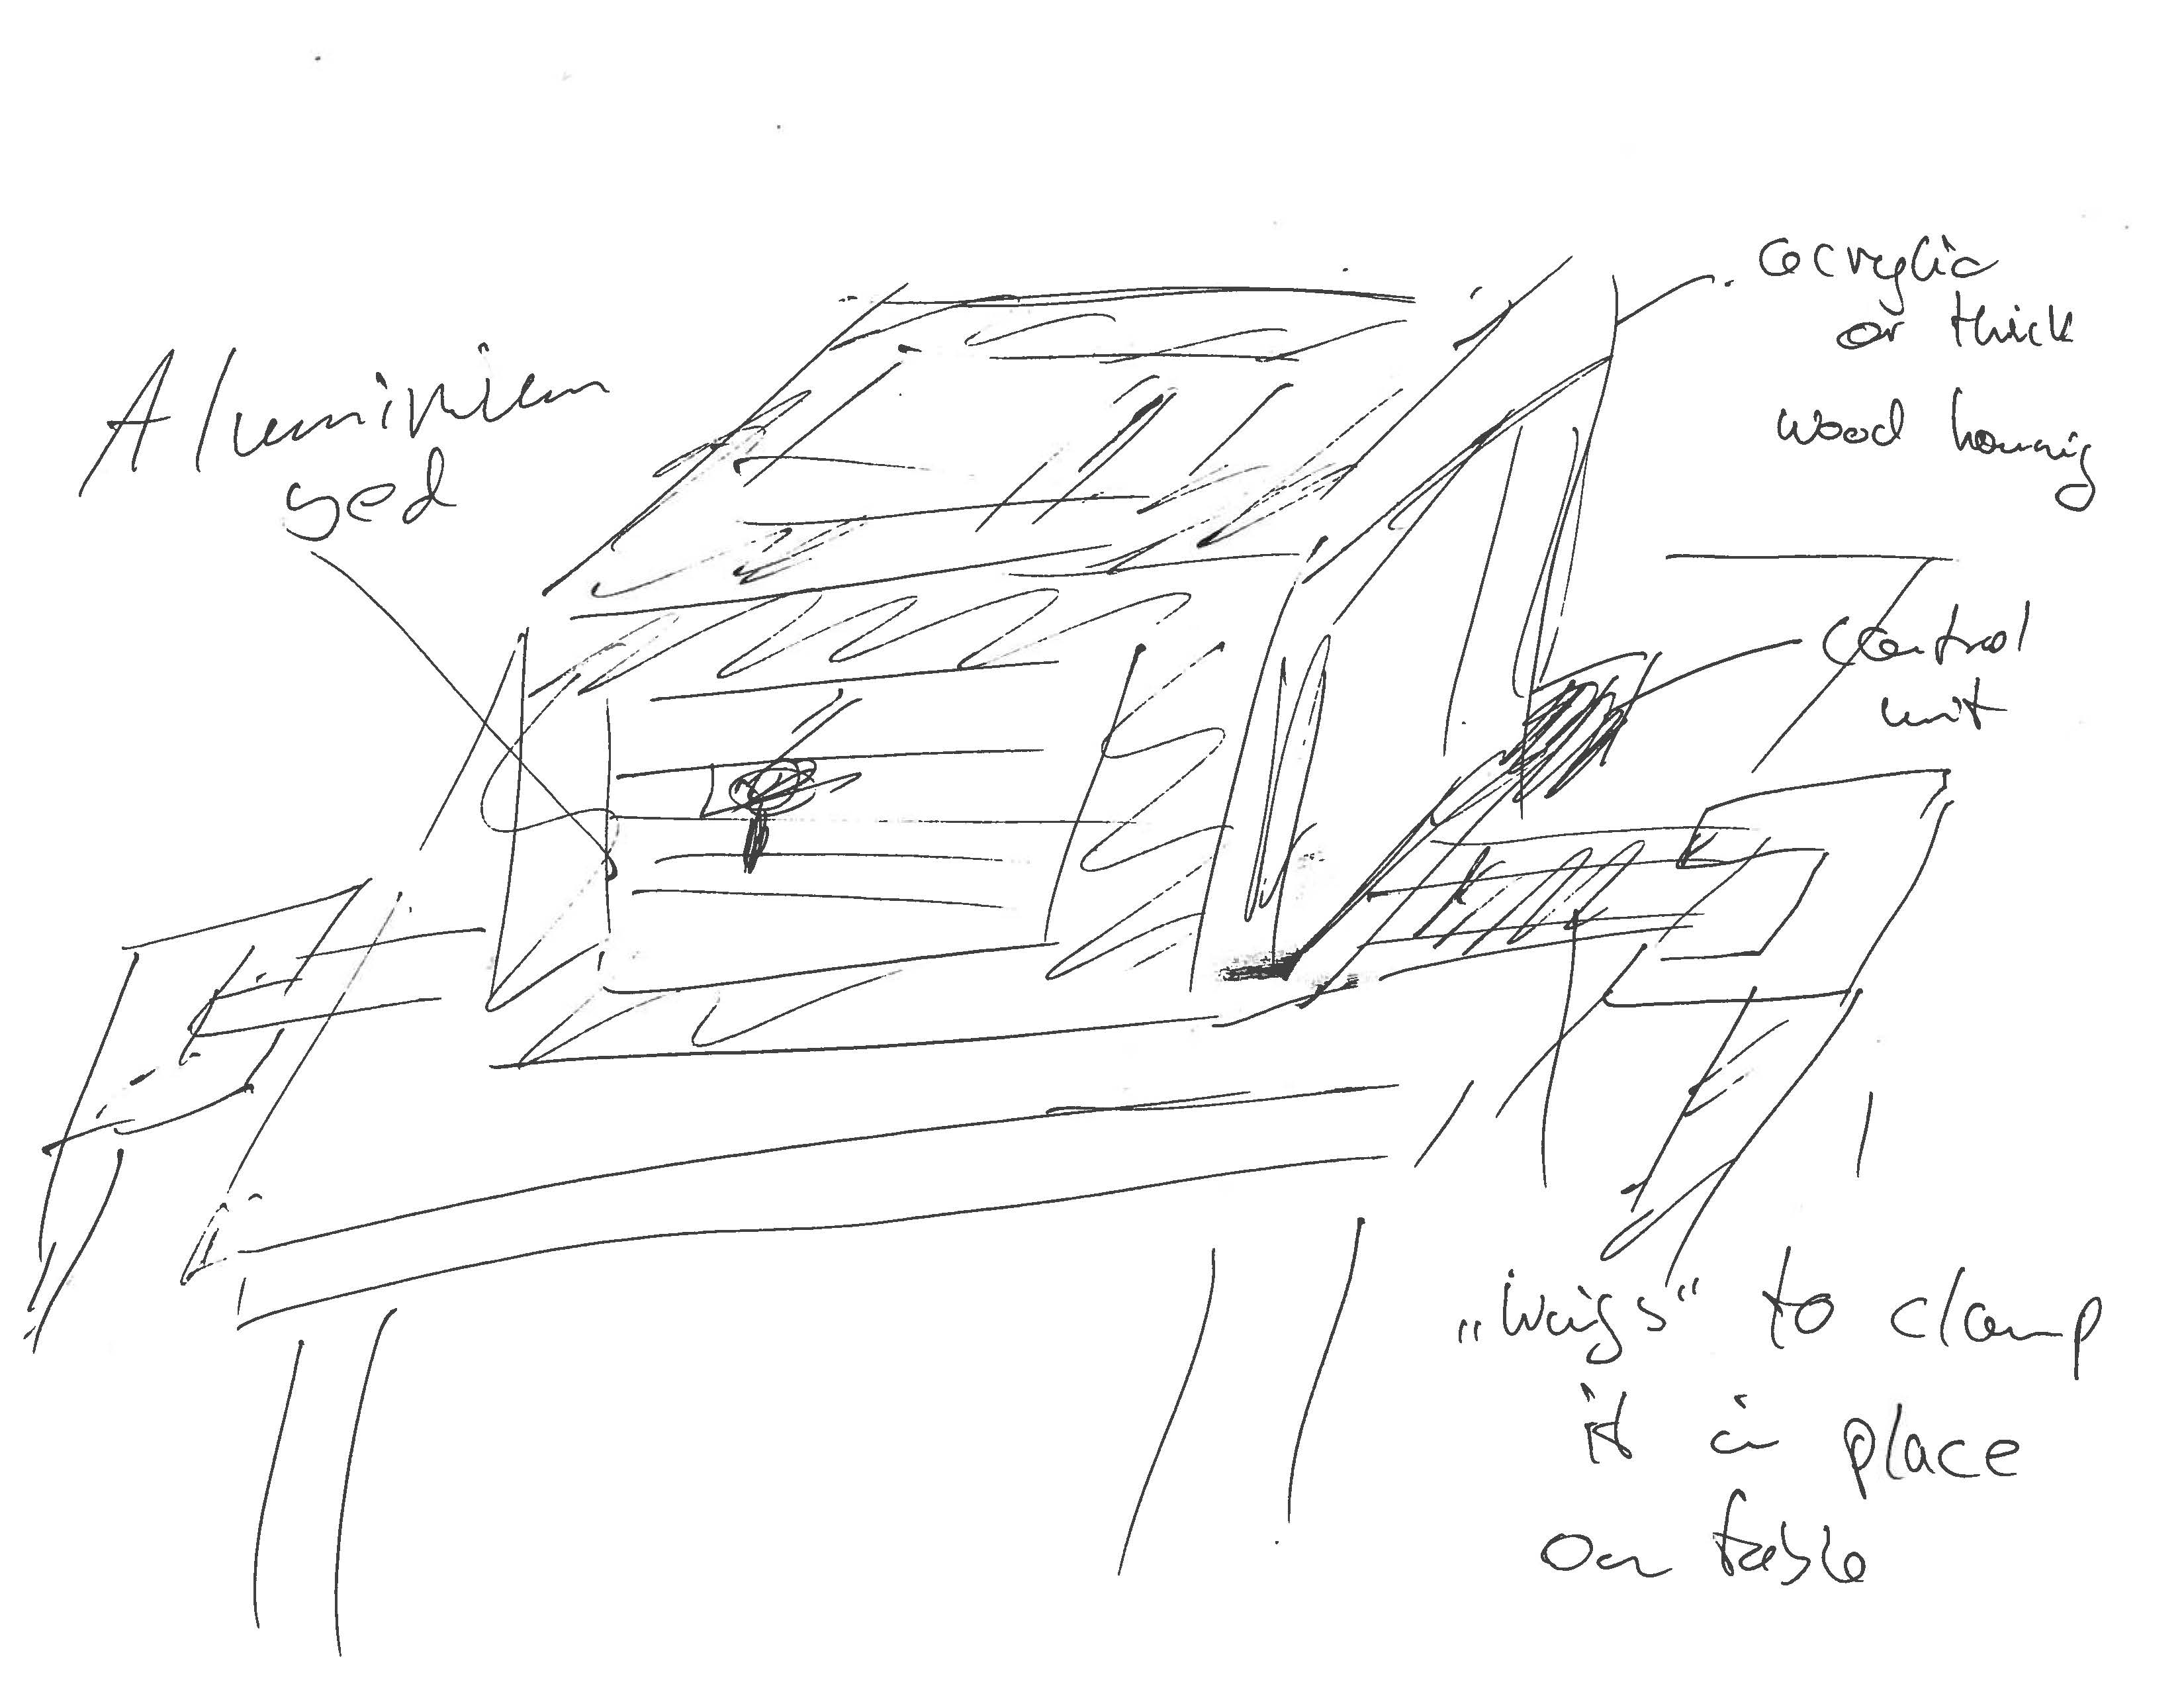 Aluminium
acrylic
or thick
wood housing
control
unit
„Wings“ to clamp
it in place
on table